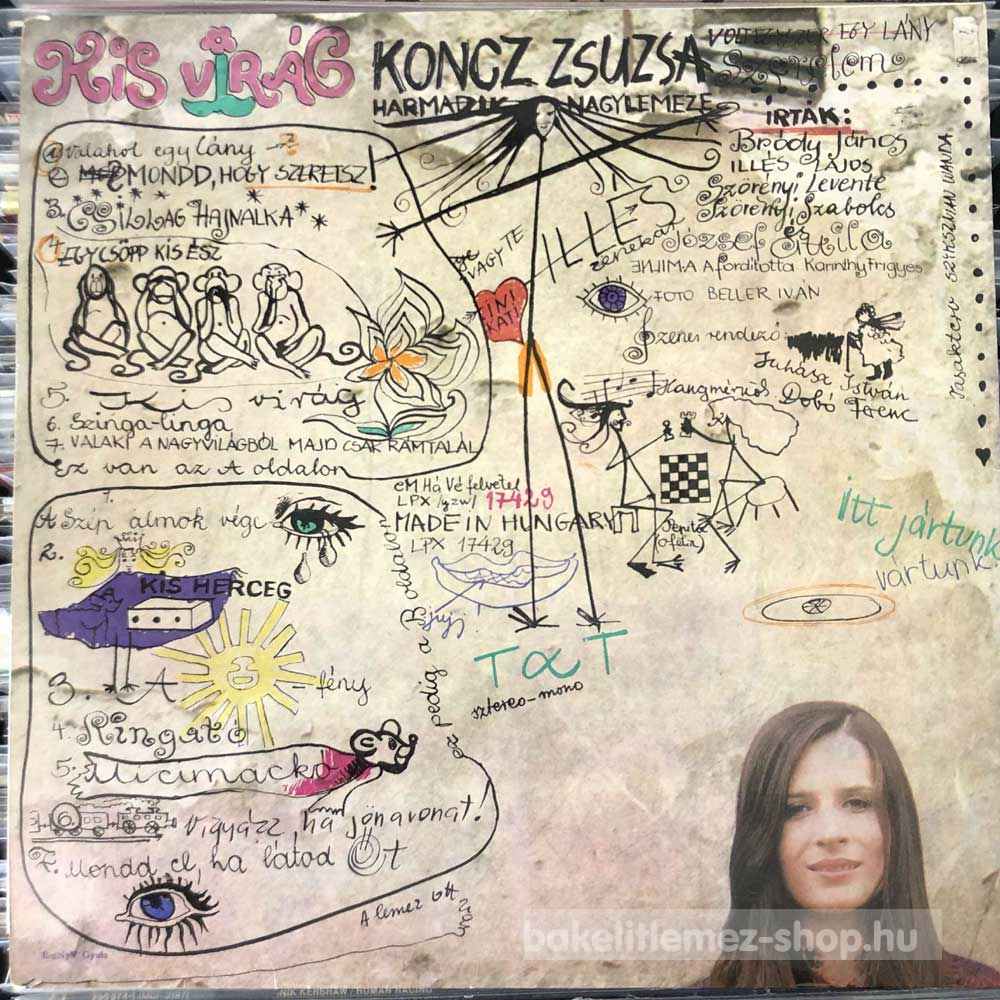 KIS VIRÁG
KONCZ ZSUZSA
HARMADIK NAGYLEMEZE
EGY LÁNY
Szerelem
1. Valahol egy lány
2. MONDD, HOGY SZERETSZ!
3. CSILLAG HAJNALKA
4. EGYCSÖPP KIS ÉSZ
5. Kis virág
6. Szinga-linga
7. VALAKI A NAGYVILÁGBÓL MAJD CSAK RÁMTALÁL
Ez van az A oldalon
ÍRTÁK:
Bródy János
ILLÉS LAJOS
Szörényi Levente
Szörényi Szabolcs
és
József Attila
A fordította Karinthy Frigyes
FOTO BELLER IVÁN
Zenei rendező
Juhász István
Hangmérnök
Dobó Ferenc
VAGY TE
ILLÉS
zenekar
TINI
KATI
eM Há Vé felvétel
LPX /gzw/ 17429
MADE IN HUNGARY
LPX 17429
1.
A Szép álmok vége
2.
KIS HERCEG
3. A - fény
4. Ringató
5. Micimackó
Vigyázz, ha jön a vonat!
7. Mondd el, ha látod Őt
ez pedig a B oldalon
jujj
TαT
sztereo-mono
itt jártunk
vártunk
A lemez itt
bakelitlemez-shop.hu
NIK KERSHAW / HUMAN RACING